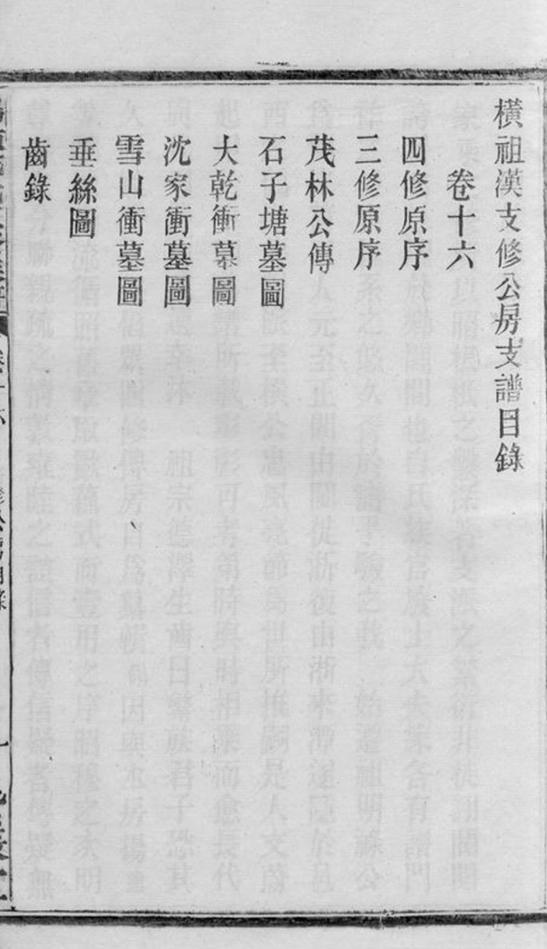 橫祖漢支修公房支譜目錄
卷十六
四修原序
三修原序
茂林公傳
石子塘墓圖
大乾衝墓圖
沈家衝墓圖
雪山衝墓圖
垂絲圖
齒錄